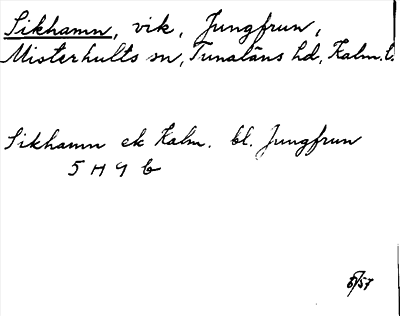 Sikhamn, vik, Jungfrun,
Misterhults sn, Tunaläns hd, Kalm. l.
Sikhamn ek Kalm. bl. Jungfrun
5 H 9 b
5/57